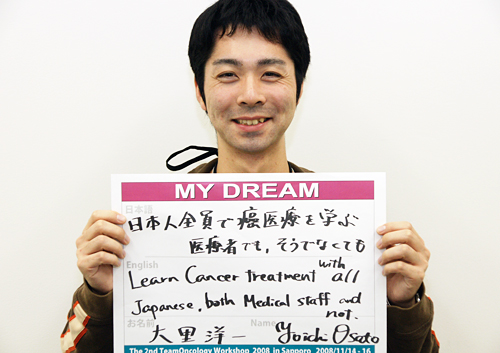 MY DREAM
日本語
日本人全員で癌医療を学ぶ
医療者でも、そうでなくても
English
Learn Cancer treatment with all
Japanese, both Medical staff and not.
お名前
大里洋一
Name
Yoichi Osato
The 2nd TeamOncology Workshop 2008 in Sapporo 2008/11/14 - 16